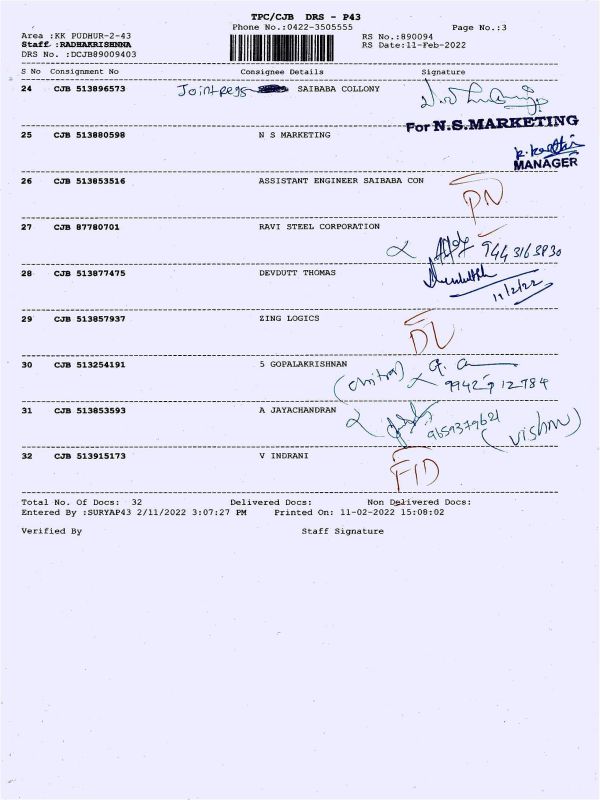 TPC/CJB DRS - P43
Phone No.:0422-3505555 Page No.:3
Area :KK PUDHUR-2-43 RS No.:890094
Staff :RADHAKRISHNNA RS Date:11-Feb-2022
DRS No. :DCJB89009403
S No Consignment No Consignee Details Signature
24 CJB 513896573 Joint Regs SAIBABA COLLONY
For N.S.MARKETING
25 CJB 513880598 N S MARKETING
MANAGER
26 CJB 513853516 ASSISTANT ENGINEER SAIBABA CON
PN
27 CJB 87780701 RAVI STEEL CORPORATION
9443163830
28 CJB 513877475 DEVDUTT THOMAS
11/2/22
29 CJB 513857937 ZING LOGICS
DL
30 CJB 513254191 5 GOPALAKRISHNAN
(chitra) 9942912784
31 CJB 513853593 A JAYACHANDRAN
9659379621 (vishnu)
32 CJB 513915173 V INDRANI
FID
Total No. Of Docs: 32 Delivered Docs: Non Delivered Docs:
Entered By :SURYAP43 2/11/2022 3:07:27 PM Printed On: 11-02-2022 15:08:02
Verified By Staff Signature